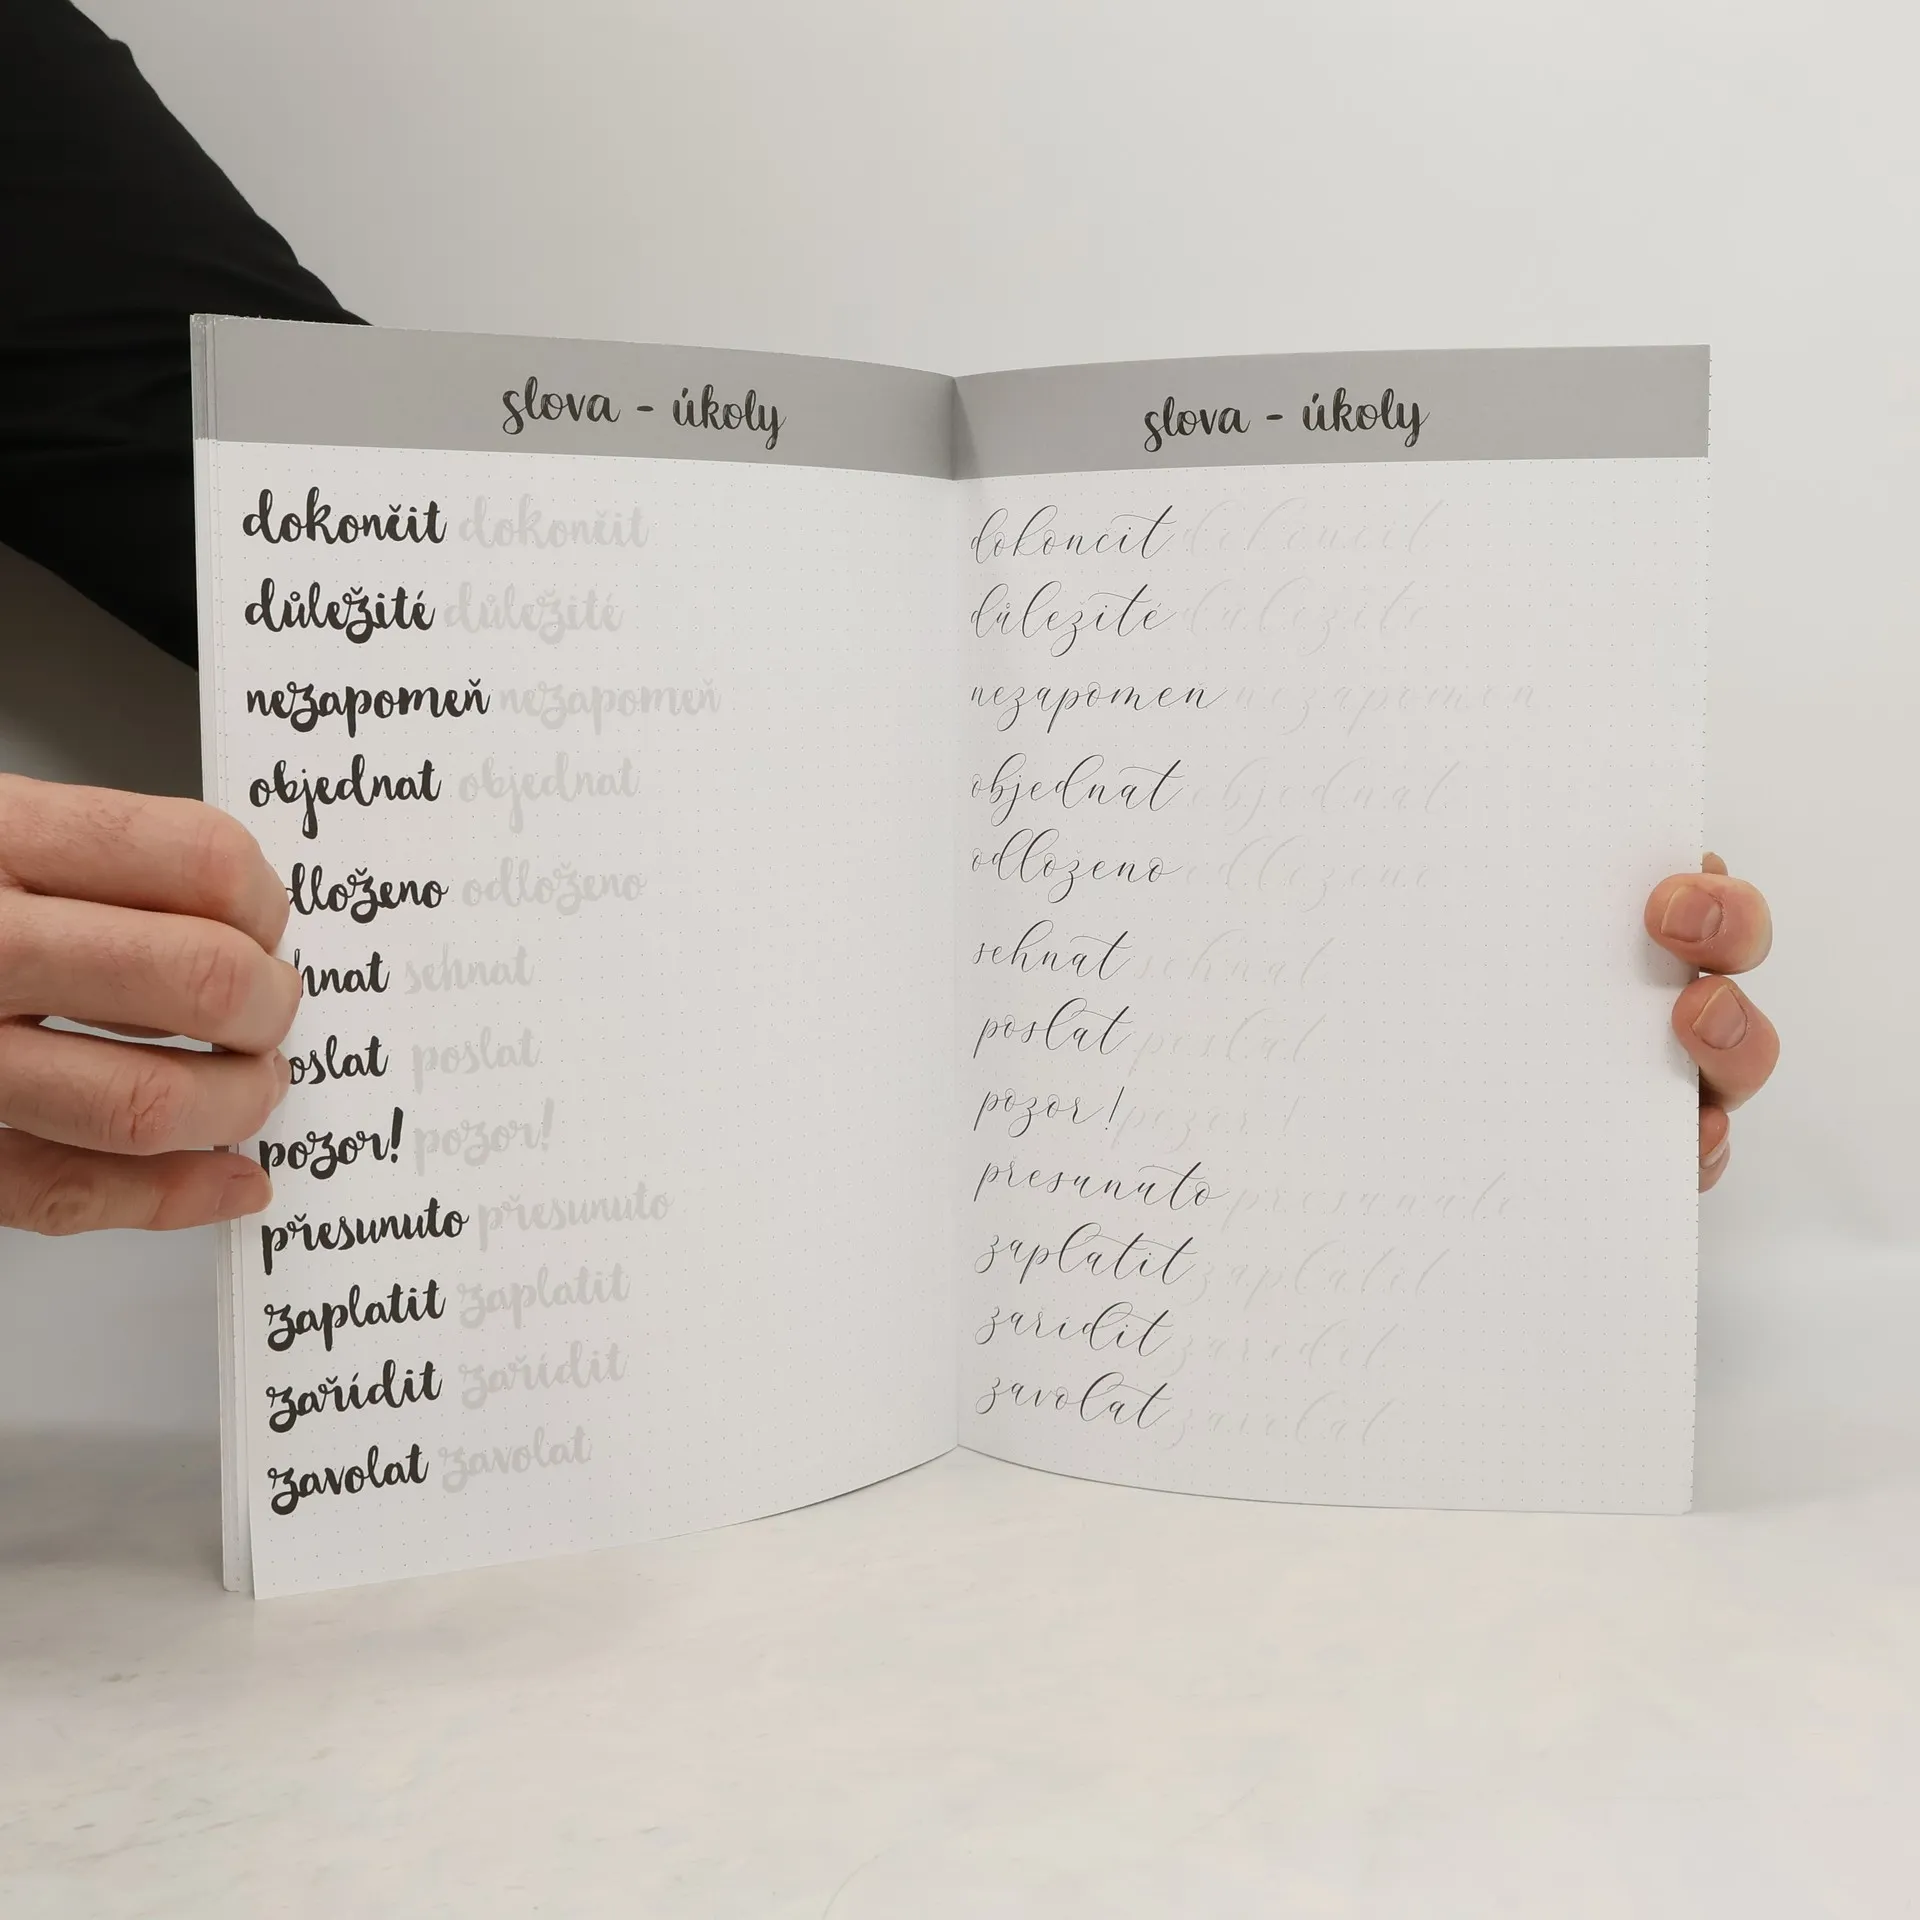 slova - úkoly
dokončit dokončit
důležité důležité
nezapomeň nezapomeň
objednat objednat
dloženo odloženo
hnat sehnat
oslat poslat
pozor! pozor!
přesunuto přesunuto
zaplatit zaplatit
zařídit zařídit
zavolat zavolat
slova - úkoly
dokoncit dokoncit
důležité důležité
nezapomeň nezapomen
objednat objednat
odloženo odlozeno
sehnat sehnat
poslat poslat
pozor! pozor!
presunuto presunuto
zaplatit zaplatit
zaridit zaridit
zavolat zavolat